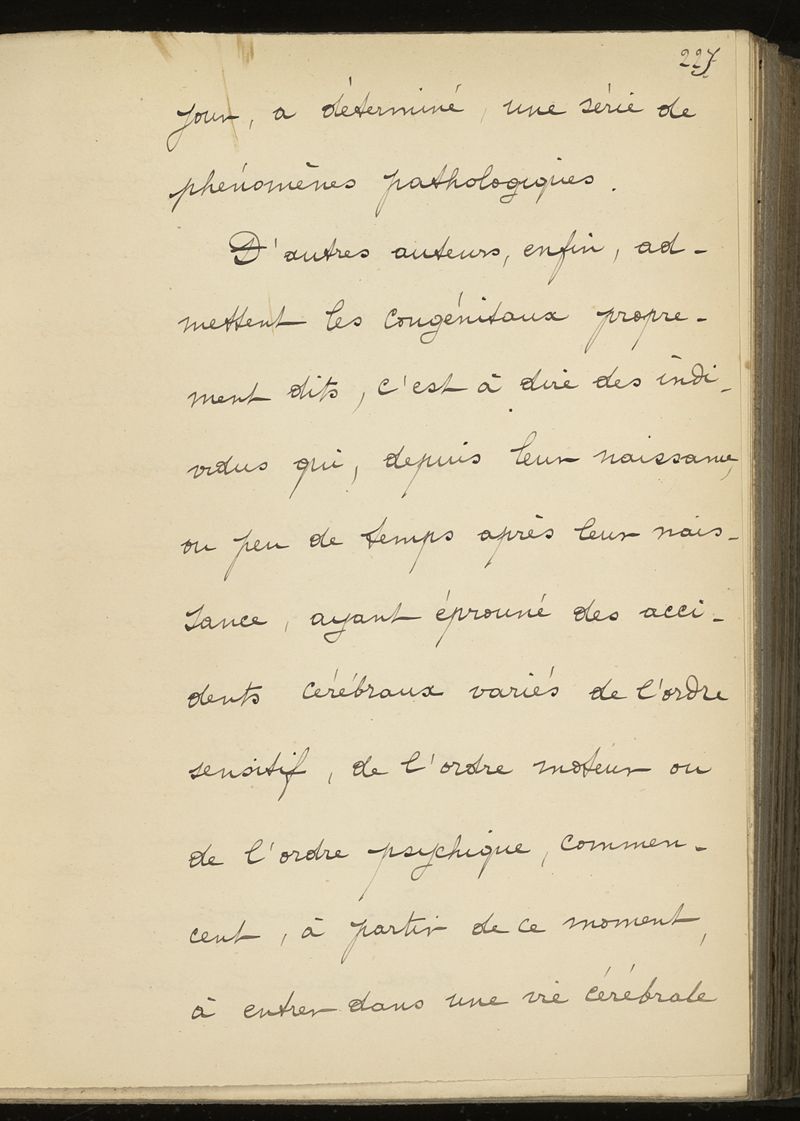 227
jour, a déterminé, une série de
phénomènes pathologiques.
D'autres auteurs, enfin, ad-
mettent les congénitaux propre-
ment dits, c'est à dire des indi-
vidus qui, depuis leur naissance,
ou peu de temps après leur nais-
sance, ayant éprouvé des acci-
dents cérébraux variés de l'ordre
sensitif, de l'ordre moteur ou
de l'ordre psychique, commen-
cent, à partir de ce moment,
à entrer dans une vie cérébrale